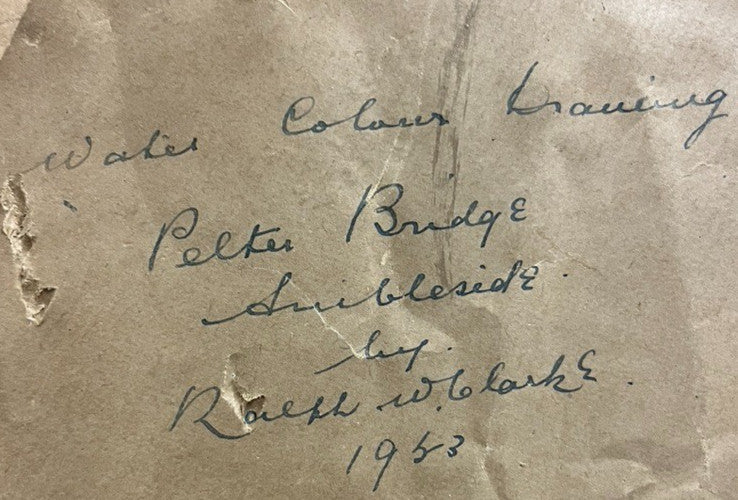 Water Colour Drawing
Pelter Bridge
Ambleside.
by.
Ralph W. Clarke.
1953